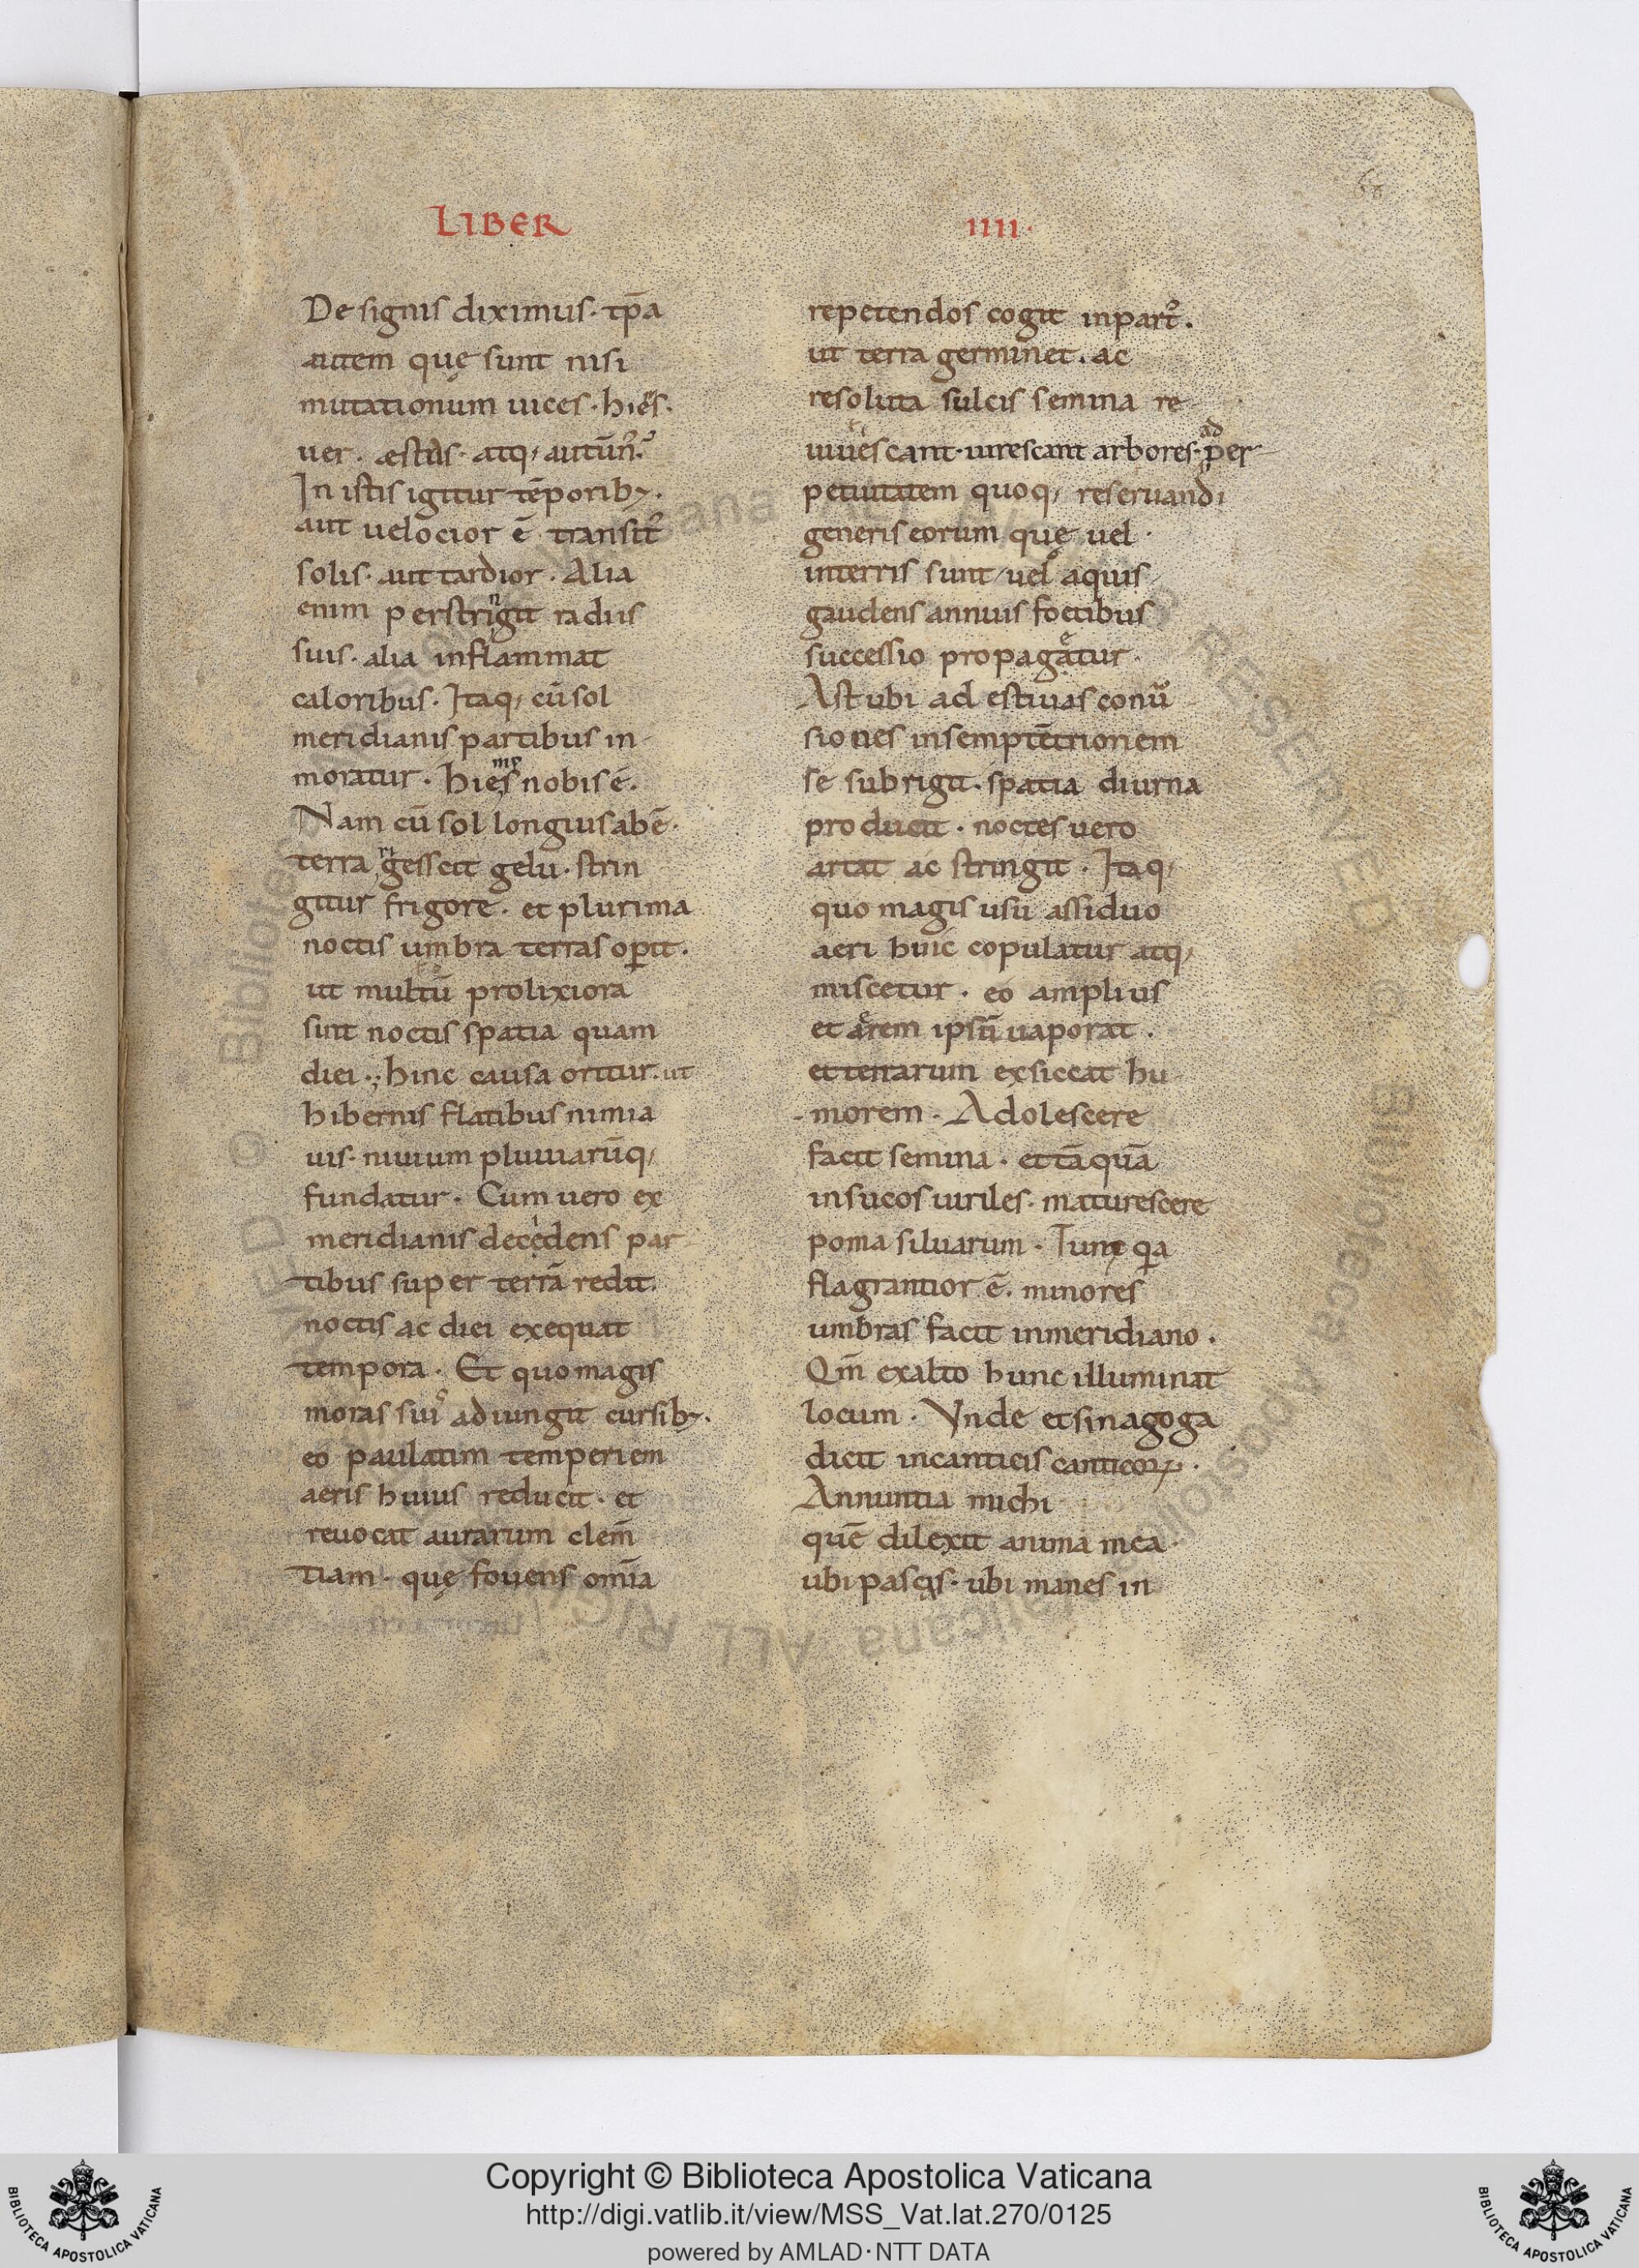 LIBER
De signis diximus· tp̄a
autem quę sunt nisi
mutationum uices· hiēs·
uer· æstus· atq; autūn᷒·
In istis igitur tēporib;·
aut uelocior ē transit᷒
solis· aut tardior· Alia
enim perstringit radiis
suis· alia inflammat
caloribus· Itaq; cū sol
meridianis partibus in
moratur· hiemps nobis ē·
Nam cū sol longius abē·
terra rigescit gelu· strin
gitur frigore· et plurima
noctis umbra terras op̄it·
ut multū prolixiora
sint noctis spatia quam
diei·; hinc causa oritur· ut
hibernis flatibus nimia
uis· niuium pluuiarūq;
fundatur· Cum uero ex
meridianis decedens par
tibus super terrā redit·
noctis ac diei exequat
tempora· Et quo magis
moras suis adiungit cursib;·
eo paulatim temperiem
aeris huius reducit· et
reuocat aurarum clem̄
tiam· quę fouens om̄ia
IIII·
repetendos cogit in part᷒·
ut terra germinet· ac
resoluta sulcis semina re
uiuescant· uirescant arbores· ad per
petuitatem quoq; reseruandi
generis eorum quę uel
in terris sunt uel aquis
gaudens annuis foetibus
successio propagetur·
Ast ubi ad estiuas conu᷒
siones in semptētrionem
se subrigit· spatia diurna
producit· noctes uero
artat ac stringit· Itaq;
quo magis usu assiduo
aeri huic copulatur atq;
miscetur· eo amplius
et aerem ipsū uaporat·
et terrarum exsiccat hu
morem· Adolescere
facit semina· et tāquā
in sucos uiriles· maturescere
poma siluarum· Tunc q̄a
flagrantior ē· minores
umbras facit in meridiano·
Qm̄ ex alto hunc illuminat
locum· Vnde et sinagoga
dicit in canticis canticoꝝ·
Annuntia michi
quē dilexit anima mea·
ubi pascis· ubi manes in
Copyright © Biblioteca Apostolica Vaticana
http://digi.vatlib.it/view/MSS_Vat.lat.270/0125
powered by AMLAD·NTT DATA
BIBLIOTECA APOSTOLICA VATICANA
BIBLIOTECA APOSTOLICA VATICANA